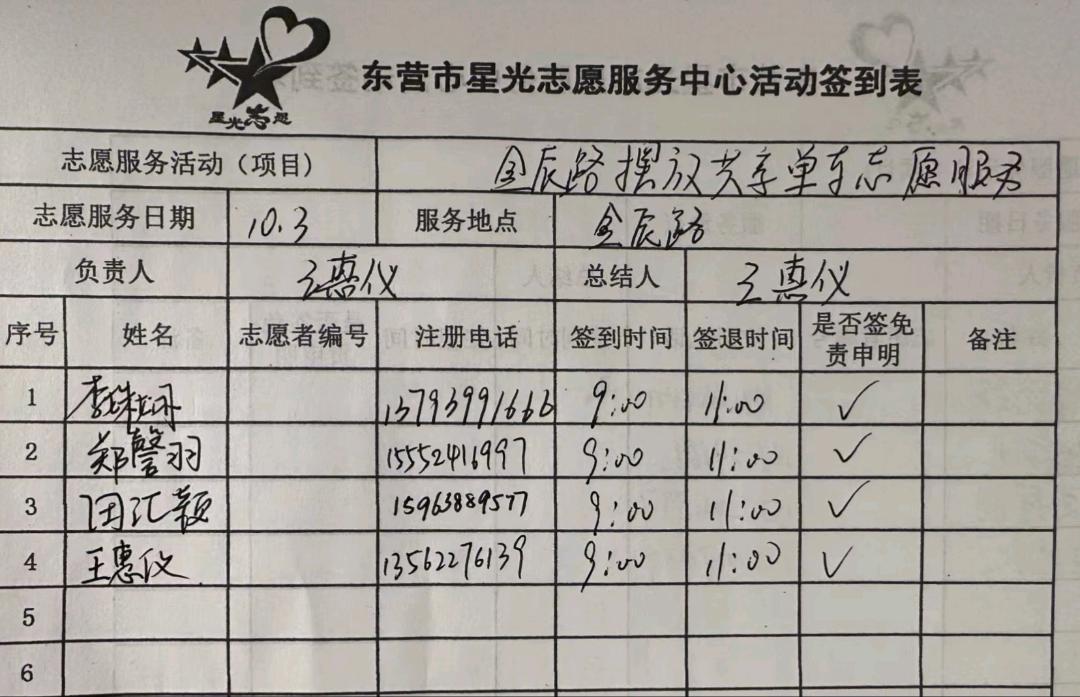 星光志愿
东营市星光志愿服务中心活动签到表
志愿服务活动（项目） 金辰路摆放共享单车志愿服务
志愿服务日期 10.3 服务地点 金辰路
负责人 王惠仪 总结人 王惠仪
序号 姓名 志愿者编号 注册电话 签到时间 签退时间 是否签免责申明 备注
1 李姝娴 13793991666 9:00 11:00 ✓
2 郑謦羽 15552416997 9:00 11:00 ✓
3 田汇颖 15963889577 9:00 11:00 ✓
4 王惠仪 13562276139 9:00 11:00 ✓
5
6